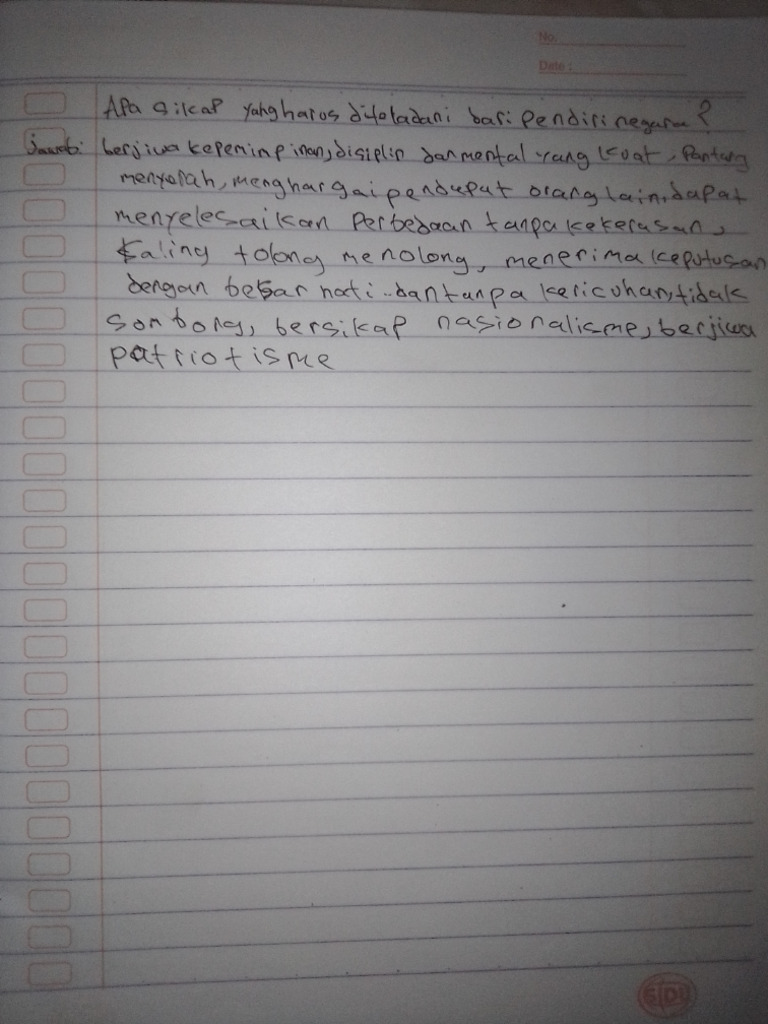 No.
Date:
Apa sikap yang harus diteladani dari pendiri negara?
Jawab: berjiwa kepemimpinan, disiplin dan mental yang kuat, Pantang
menyerah, menghargai pendapat orang lain, dapat
menyelesaikan Perbedaan tanpa kekerasan,
Saling tolong menolong, menerima keputusan
dengan besar hati dan tanpa kericuhan, tidak
sombong, bersikap nasionalisme, berjiwa
patriotisme
SIDU